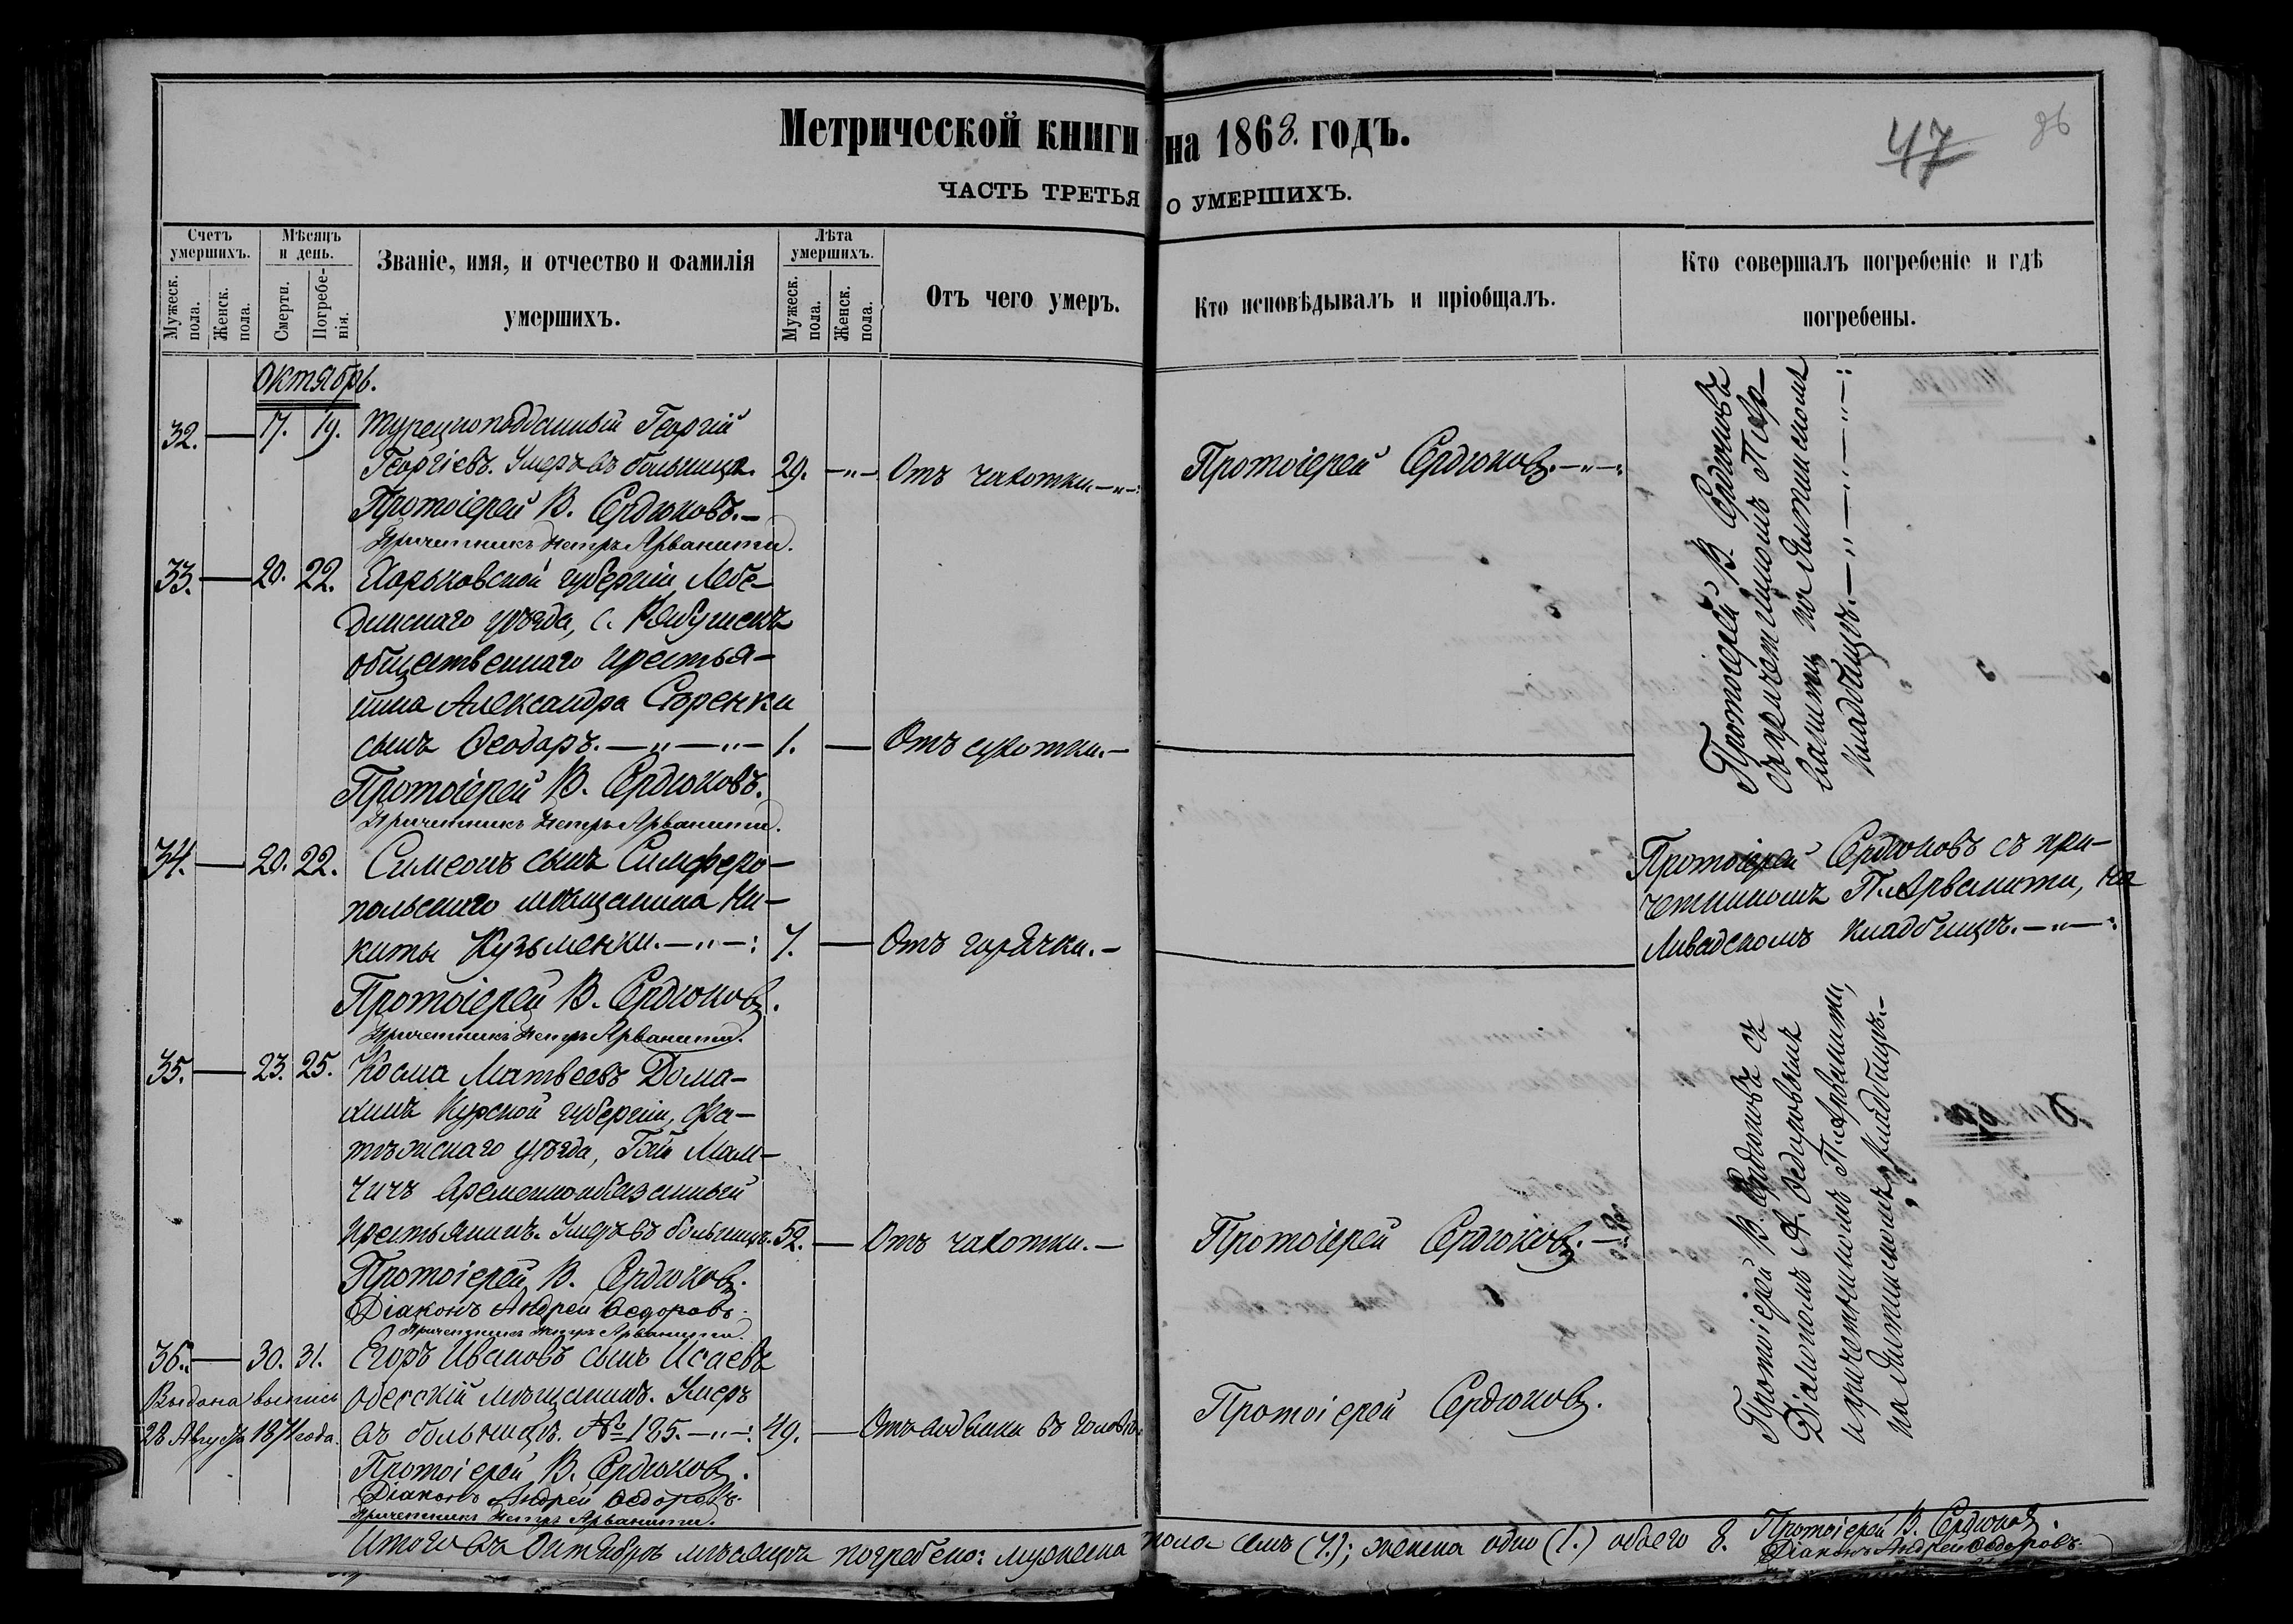 Метрической книги на 1868. годъ.
47
86
ЧАСТЬ ТРЕТЬЯ О УМЕРШИХЪ.
Счетъ умершихъ.
Мужеск. пола.
Женск. пола.
Мѣсяцъ и день.
Смерти.
Погребенія.
Званіе, имя, и отчество и фамилія
умершихъ.
Лѣта умершихъ.
Мужеск. пола.
Женск. пола.
Отъ чего умеръ.
Кто исповѣдывалъ и пріобщалъ.
Кто совершалъ погребеніе и гдѣ
погребены.
Октябрь.
32. — 17. 19. Турецкоподданный Георгій
Георгіевъ. Умеръ въ больницѣ. 29. —"— Отъ чахотки —"—: Протоіерей Сердюковъ. —"—:
Протоіерей В. Сердюковъ. —
Причетникъ Петръ Арванити.
33. — 20. 22. Харьковской губерніи Лебе-
динскаго уѣзда, с. Рябушекъ
общественнаго крестья-
нина Александра Сѣренки
сынъ Ѳеодоръ. —"—"— 1. — Отъ сухотки. —
Протоіерей В. Сердюковъ.
Причетникъ Петръ Арванити.
Протоіерей В. Сердюковъ
съ причетникомъ П. Ар-
ванити, на Ялтинскомъ
кладбищѣ. —"—"—"—:
34. — 20. 22. Симеонъ сынъ Симферо-
польскаго мѣщанина Ни-
киты Кузьменки. —"—: 7. — Отъ горячки. —
Протоіерей В. Сердюковъ.
Причетникъ Петръ Арванити.
Протоіерей Сердюковъ съ при-
четникомъ П. Арванити, на
Ливадскомъ кладбищѣ. —"—:
35. — 23. 25. Косма Матвеевъ Дома-
хинъ Курской губерніи, Фа-
тѣжскаго уѣзда,
временнообязанный
крестьянинъ. Умеръ въ больницѣ. 52. — Отъ чахотки. — Протоіерей Сердюковъ. —
Протоіерей В. Сердюковъ.
Діаконъ Андрей Ѳедоровъ.
Причетникъ Петръ Арванити.
36. — 30. 31. Егоръ Ивановъ сынъ Исаевъ
Выдана выпись
28 Августа 1871 года.
одесскій мѣщанинъ. Умеръ
въ больницѣ. № 185. —"—: 49. — Отъ водянки въ головѣ. Протоіерей Сердюковъ.
Протоіерей В. Сердюковъ.
Діаконъ Андрей Ѳедоровъ.
Причетникъ Петръ Арванити.
Протоіерей В. Сердюковъ съ
Діакономъ А. Ѳедоровымъ
и причетникомъ П. Арванити,
на Ялтинскомъ кладбищѣ. —
Итого въ Октябрѣ мѣсяцѣ погребено: мужеска пола семь (7.); женска одно (1.) обоего 8. Протоіерей В. Сердюковъ.
Діаконъ Андрей Ѳедоровъ.